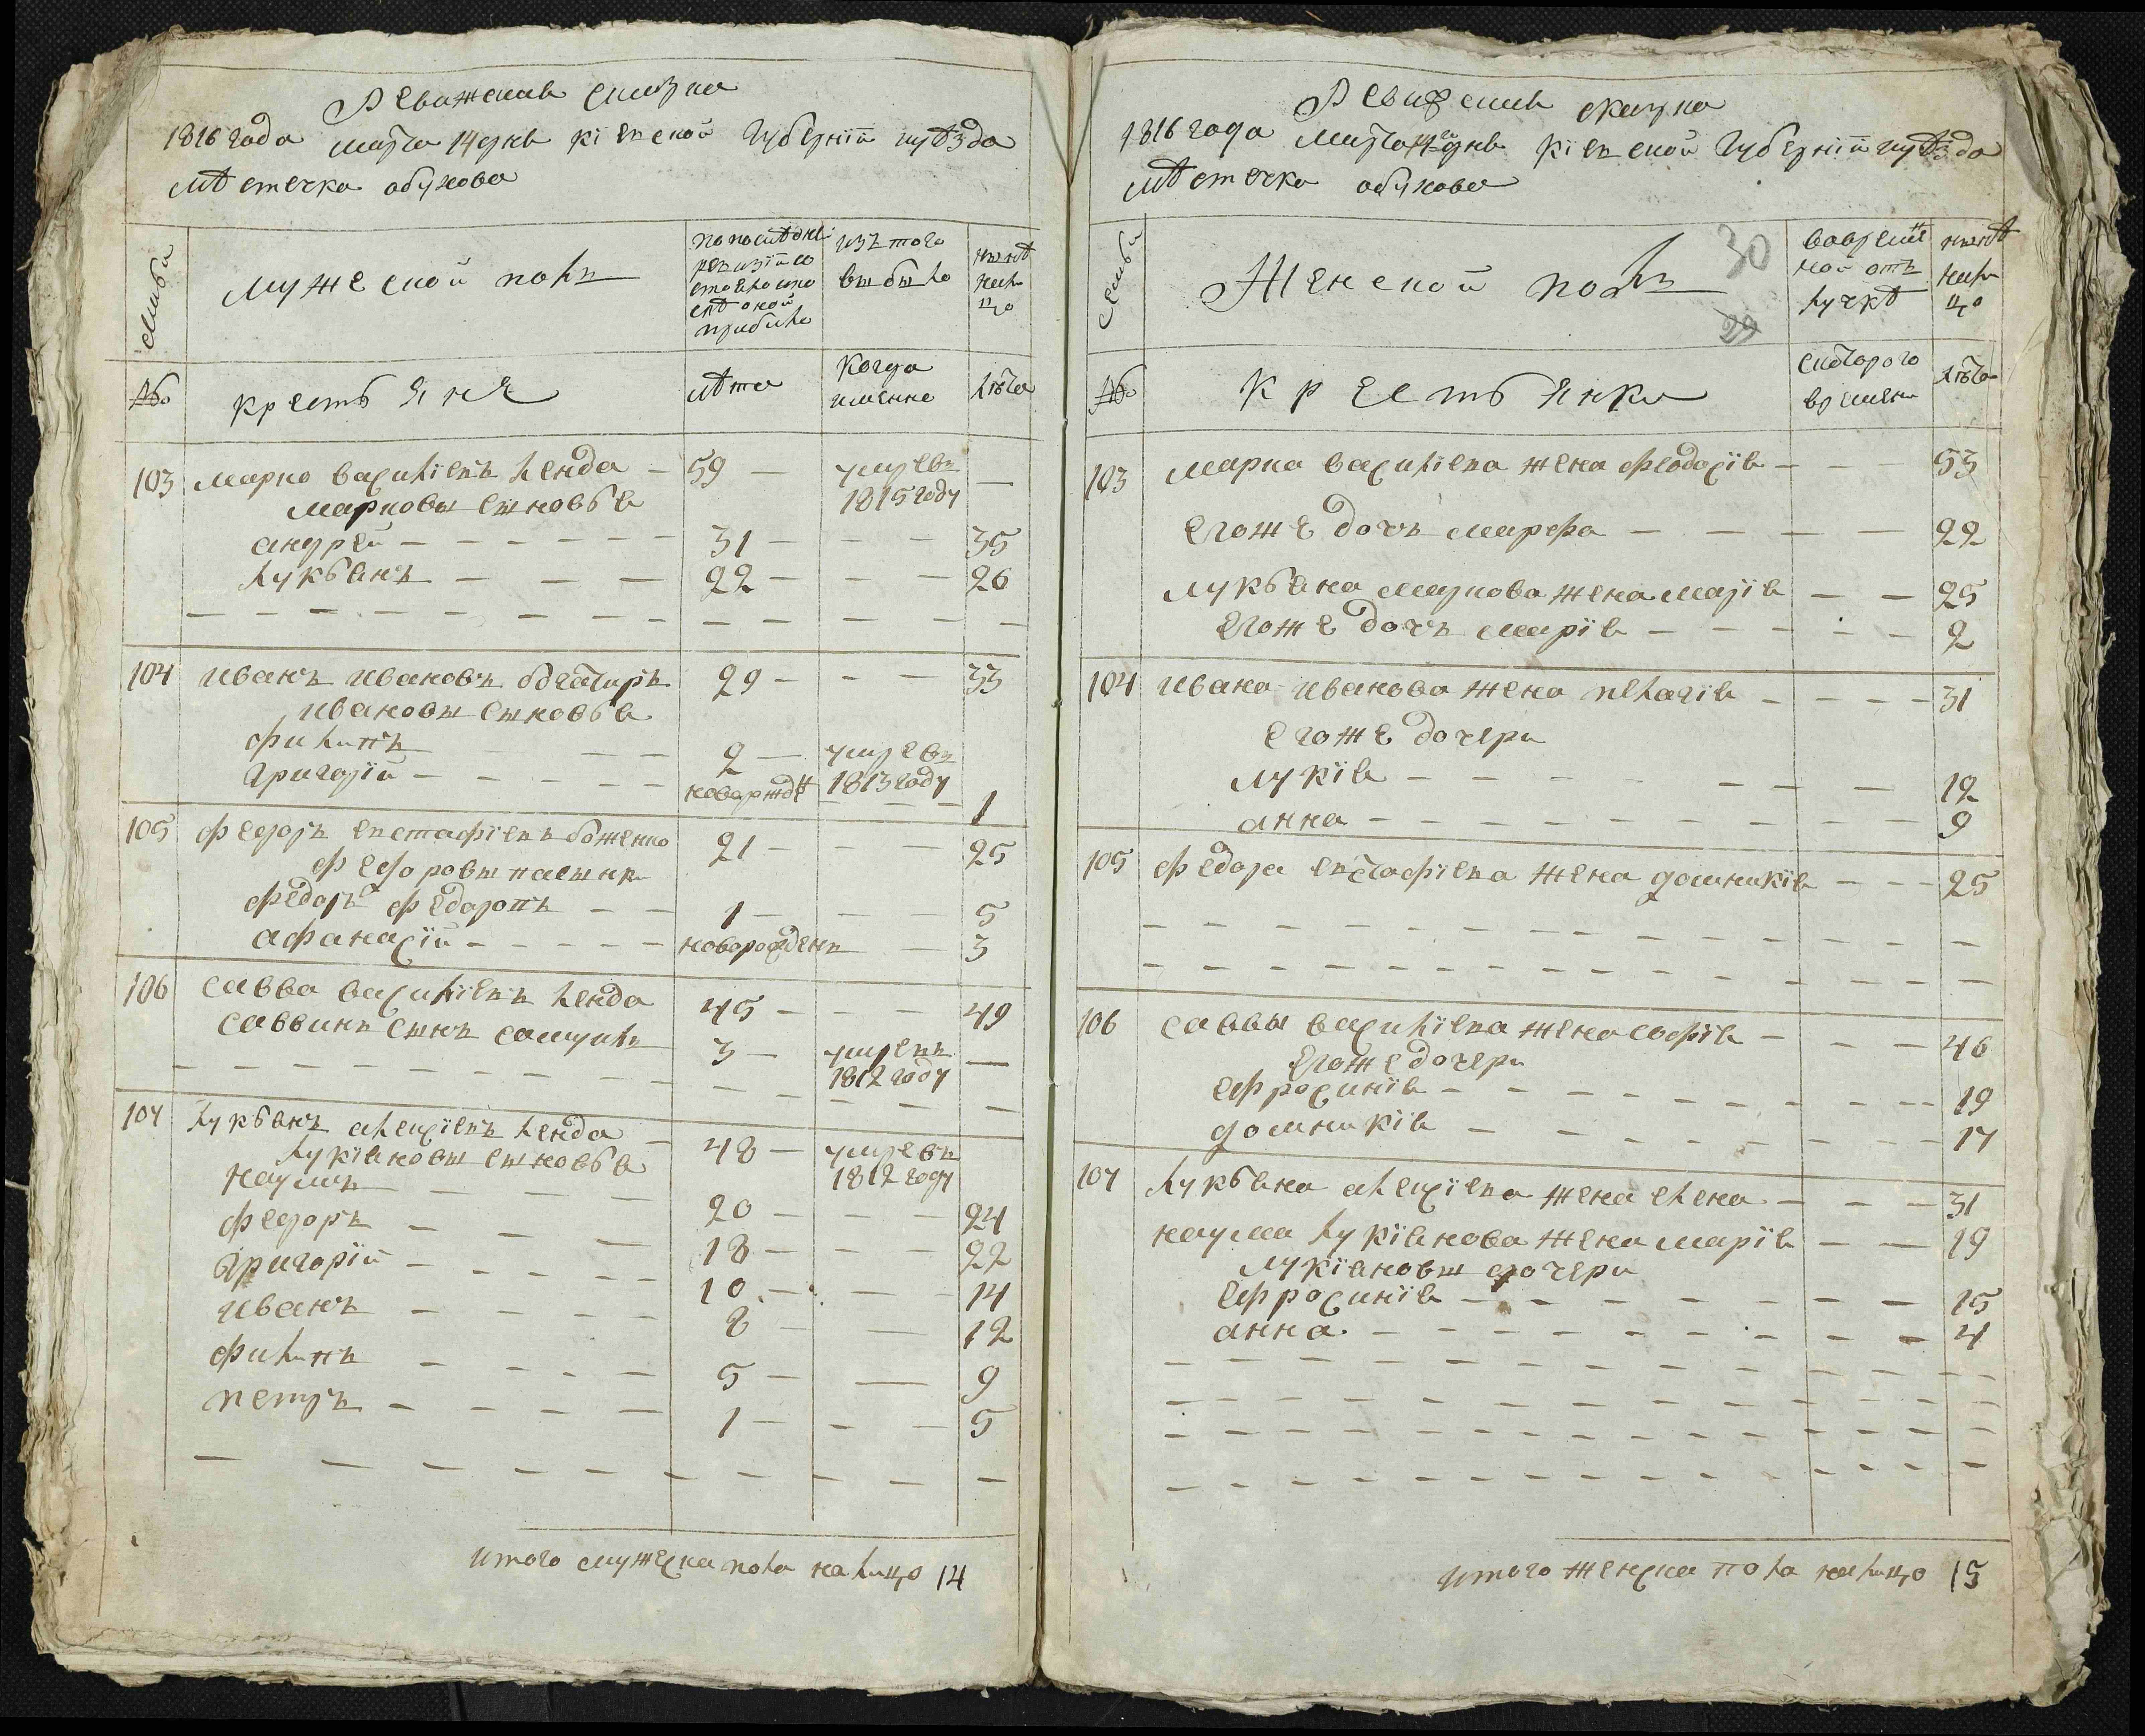 Ревижская сказка
1816 года марта 14 дня кіевской губерніи и уѣзда
мѣстечка обухова
семьи
мужеской полъ
по последней ревизіи состояло и после оной прибыло
изъ того выбыло
нынѣ на лицо
№
крестьяне
лѣта
когда именно
лѣта
103 марко василіевъ ленда — 59 — умре въ —
марковы сыновья 1815 году
андрей — 31 — 35
лукьянъ — 22 — 26
104 иванъ ивановъ богатиръ 29 — 33
ивановы сыновья
филипъ 2 — умре въ
григорій — новорожден 1813 году 1
105 федоръ евстафіевъ боженко 21 — 25
федоровы пасынки
федоръ федоровъ — 1 — 5
афанасій — новорожденъ — 3
106 савва василіевъ ленда 45 — 49
саввинъ сынъ самуилъ 3 — умре въ —
1812 году
107 лукьянъ алексіевъ ленда — 48 — умре въ
лукіяновы сыновья 1812 году
наумъ — 20 — 24
федоръ — 18 — 22
григорій — 10 — 14
иванъ — 8 — 12
филипъ — 5 — 9
петръ — 1 — 5
итого мужеска пола на лицо 14
Ревижская сказка
1816 года марта 14 дня кіевской губерніи и уѣзда
мѣстечка обухова
семьи
Женской полъ
30
29
во временной отлучкѣ
нынѣ на лицо
№
крестьянки
с котораго времени
лѣта
103 марка василіева жена феодосія — 53
егоже дочь марфа — 22
лукьяна маркова жена марія — 25
егоже дочь марія — 2
104 ивана иванова жена пелагія — 31
егоже дочери
лукія — 12
анна — 9
105 федора евстафіева жена домникія — 25
106 саввы василіева жена софія — 46
егоже дочери
ефросинія — 19
домникія — 17
107 лукьяна алексіева жена елена — 31
наума лукіянова жена марія — 19
лукіяновы дочери
ефросинія — 15
анна — 4
итого женска пола на лицо 15